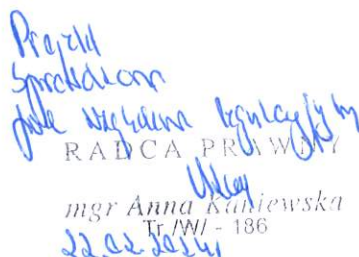 Projekt
Sprawdzono
pod względem
RADCA PRAWNY
mgr Anna Kaniewska
Tr /W/ - 186
22.02.2024r